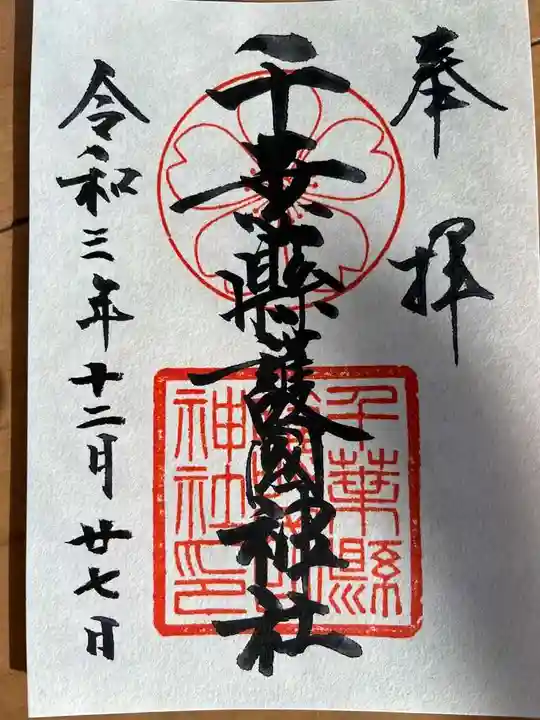 奉拝
千葉縣護國神社
千葉縣
護國
神社印
令和三年十二月廿七日